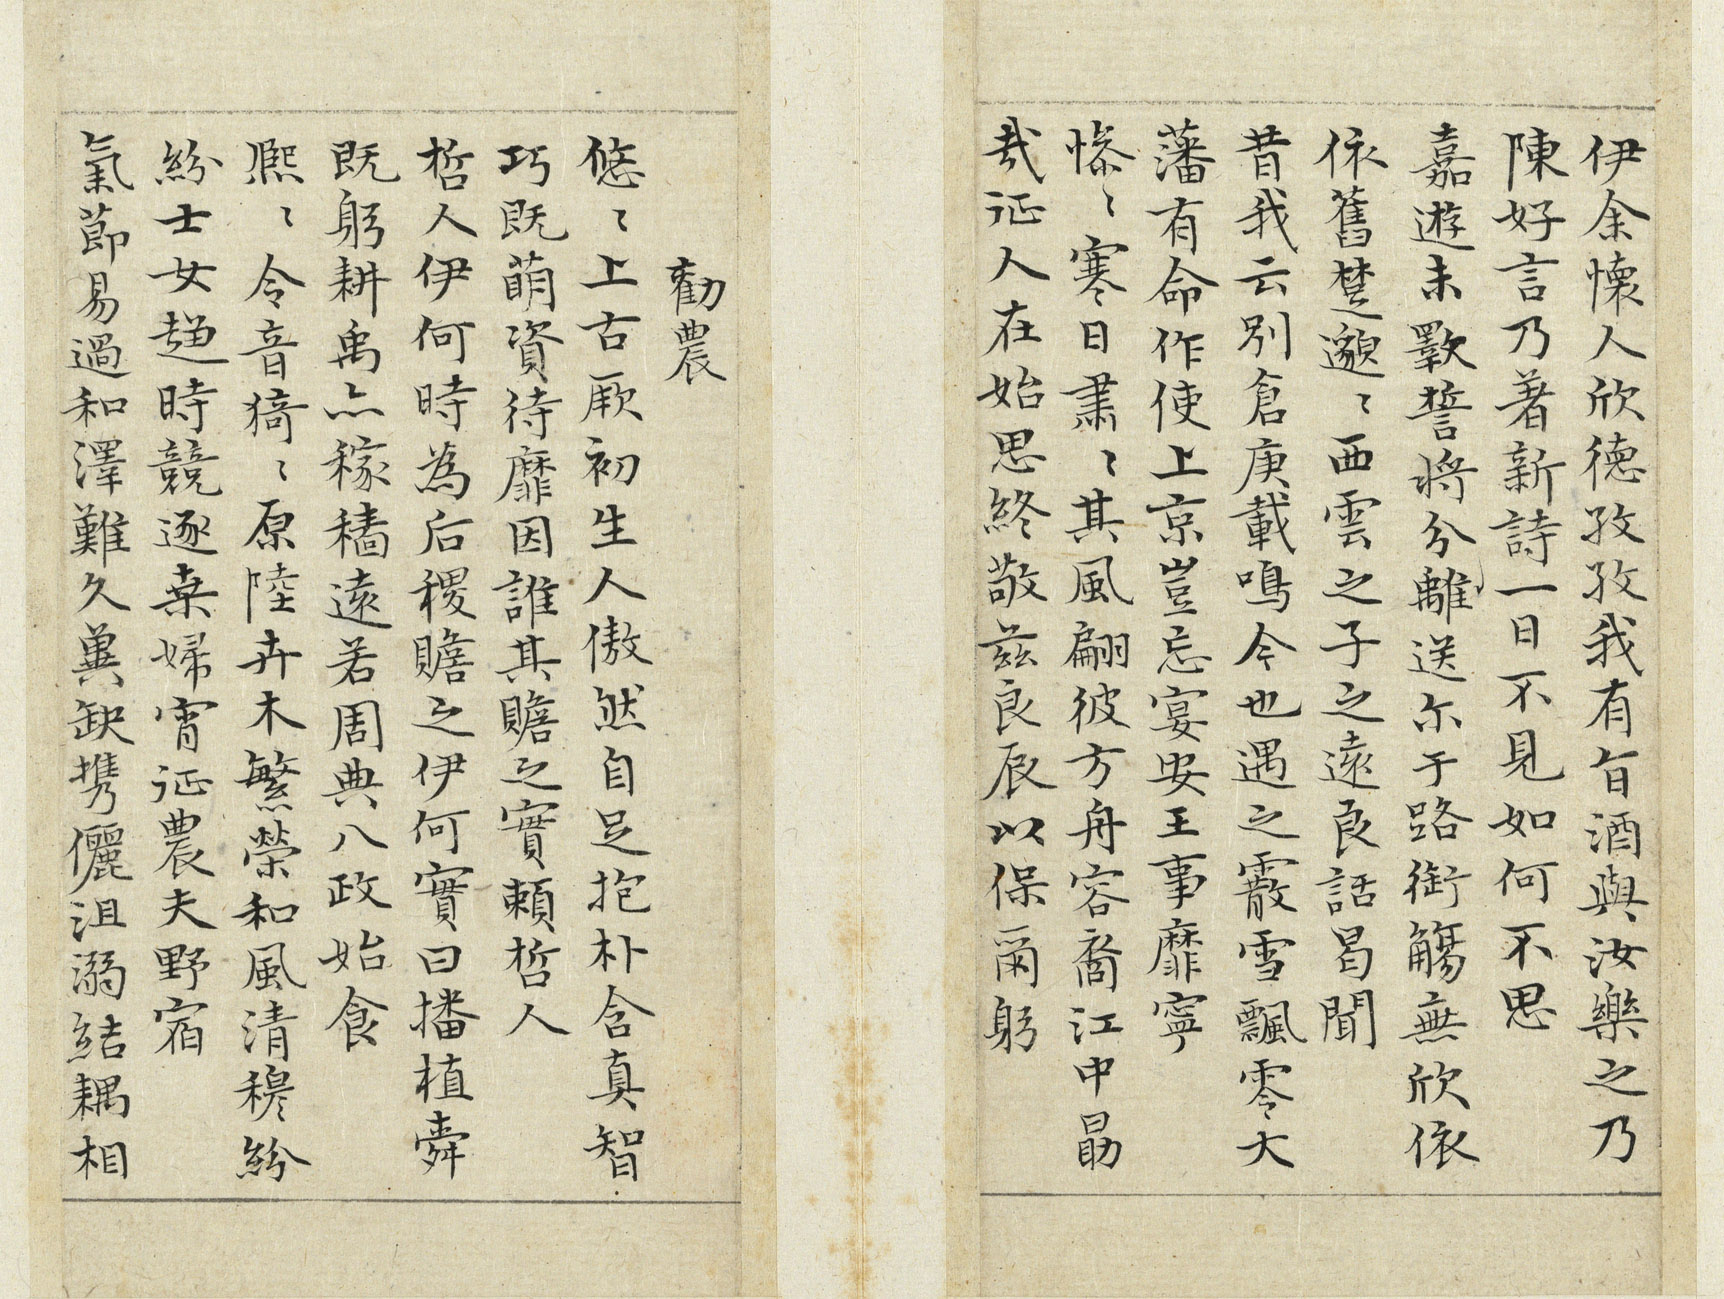 伊余懷人欣德孜孜我有旨酒與汝樂之乃
陳好言乃著新詩一日不見如何不思
嘉遊未斁誓將分離送尔于路銜觴無欣依
依舊楚邈〻西雲之子之遠良話曷聞
昔我云別倉庚載鳴今也遇之霰雪飄零大
藩有命作使上京豈忘宴安王事靡寧
慘〻寒日肅〻其風翩彼方舟容裔江中勗
哉征人在始思終敬茲良辰以保爾躬
勸農
悠〻上古厥初生人傲然自足抱朴含真智
巧既萌資待靡因誰其贍之實賴哲人
哲人伊何時為后稷贍之伊何實曰播植舜
既躬耕禹亦稼穡遠若周典八政始食
熈〻令音猗〻原陸卉木繁榮和風清穆紛
紛士女趨時競逐桑婦宵征農夫野宿
氣節易過和澤難久冀缺携儷沮溺結耦相